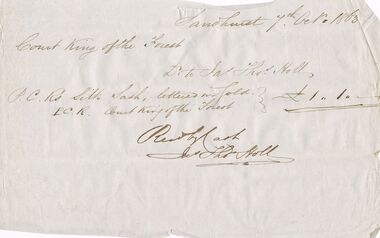 Sandhurst 7th Oct. 1863
Court King of the Forest
Dr to Jas Thos Holl
P.C. Rs Silk Sash, lettered in gold. } £1.1.-
P.C.R. Court King of the Forest
Recd by Cash
Jas Thos Holl